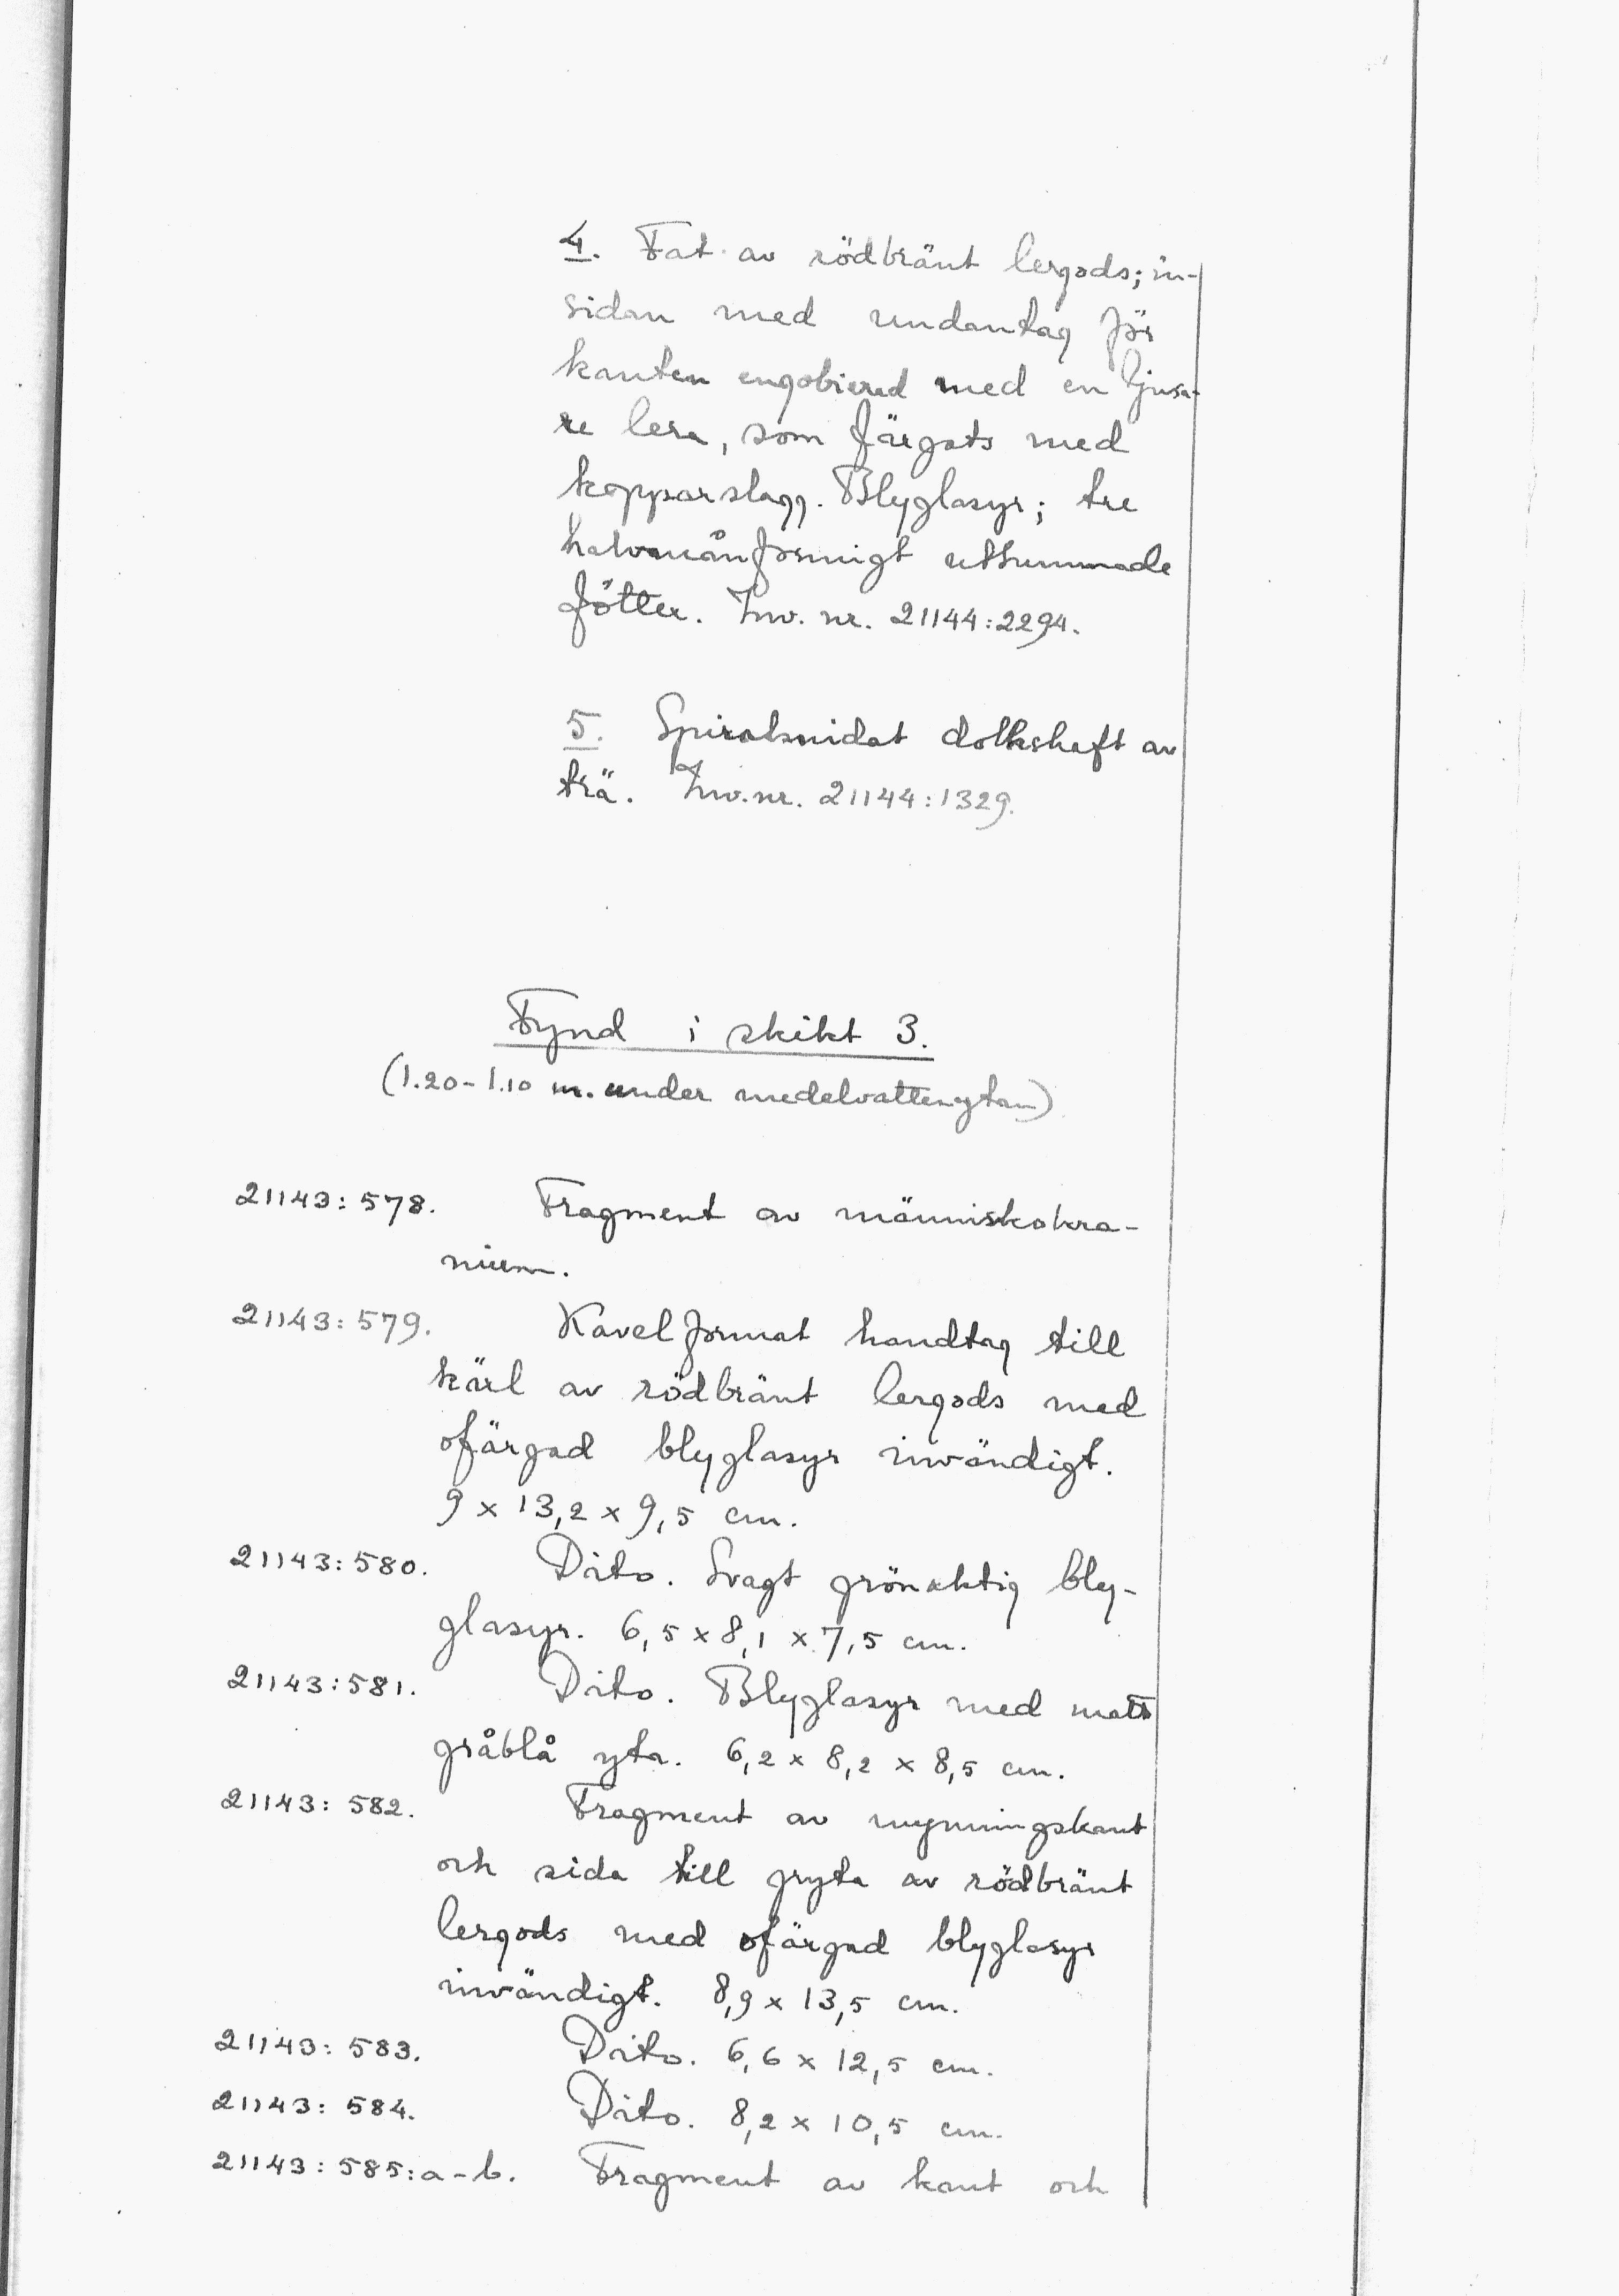 4. Fat av rödbränt lergods; in-
sidan med undantag för
kanten engobierad med en ljusa-
re lera, som färgats med
kopparslagg. Blyglasyr; tre
halvmånformigt uttummade
fötter. Inv. nr. 21144:2294.
5. Spiralsnidat dolkskaft av
trä. Inv. nr. 21144:1329.
Fynd i skikt 3.
(1.20-1.10 m. under medelvattenytan)
21143:578. Fragment av människokra-
nium.
21143:579. Kavelformat handtag till
kärl av rödbränt lergods med
ofärgad blyglasyr invändigt.
9 x 13,2 x 9,5 cm.
21143:580. Dito. Svagt grönaktig bly-
glasyr. 6,5 x 8,1 x 7,5 cm.
21143:581. Dito. Blyglasyr med matt
gråblå yta. 6,2 x 8,2 x 8,5 cm.
21143:582. Fragment av mynningskant
och sida till gryta av rödbränt
lergods med ofärgad blyglasyr
invändigt. 8,9 x 13,5 cm.
21143:583. Dito. 6,6 x 12,5 cm.
21143:584. Dito. 8,2 x 10,5 cm.
21143:585:a-b. Fragment av kant och